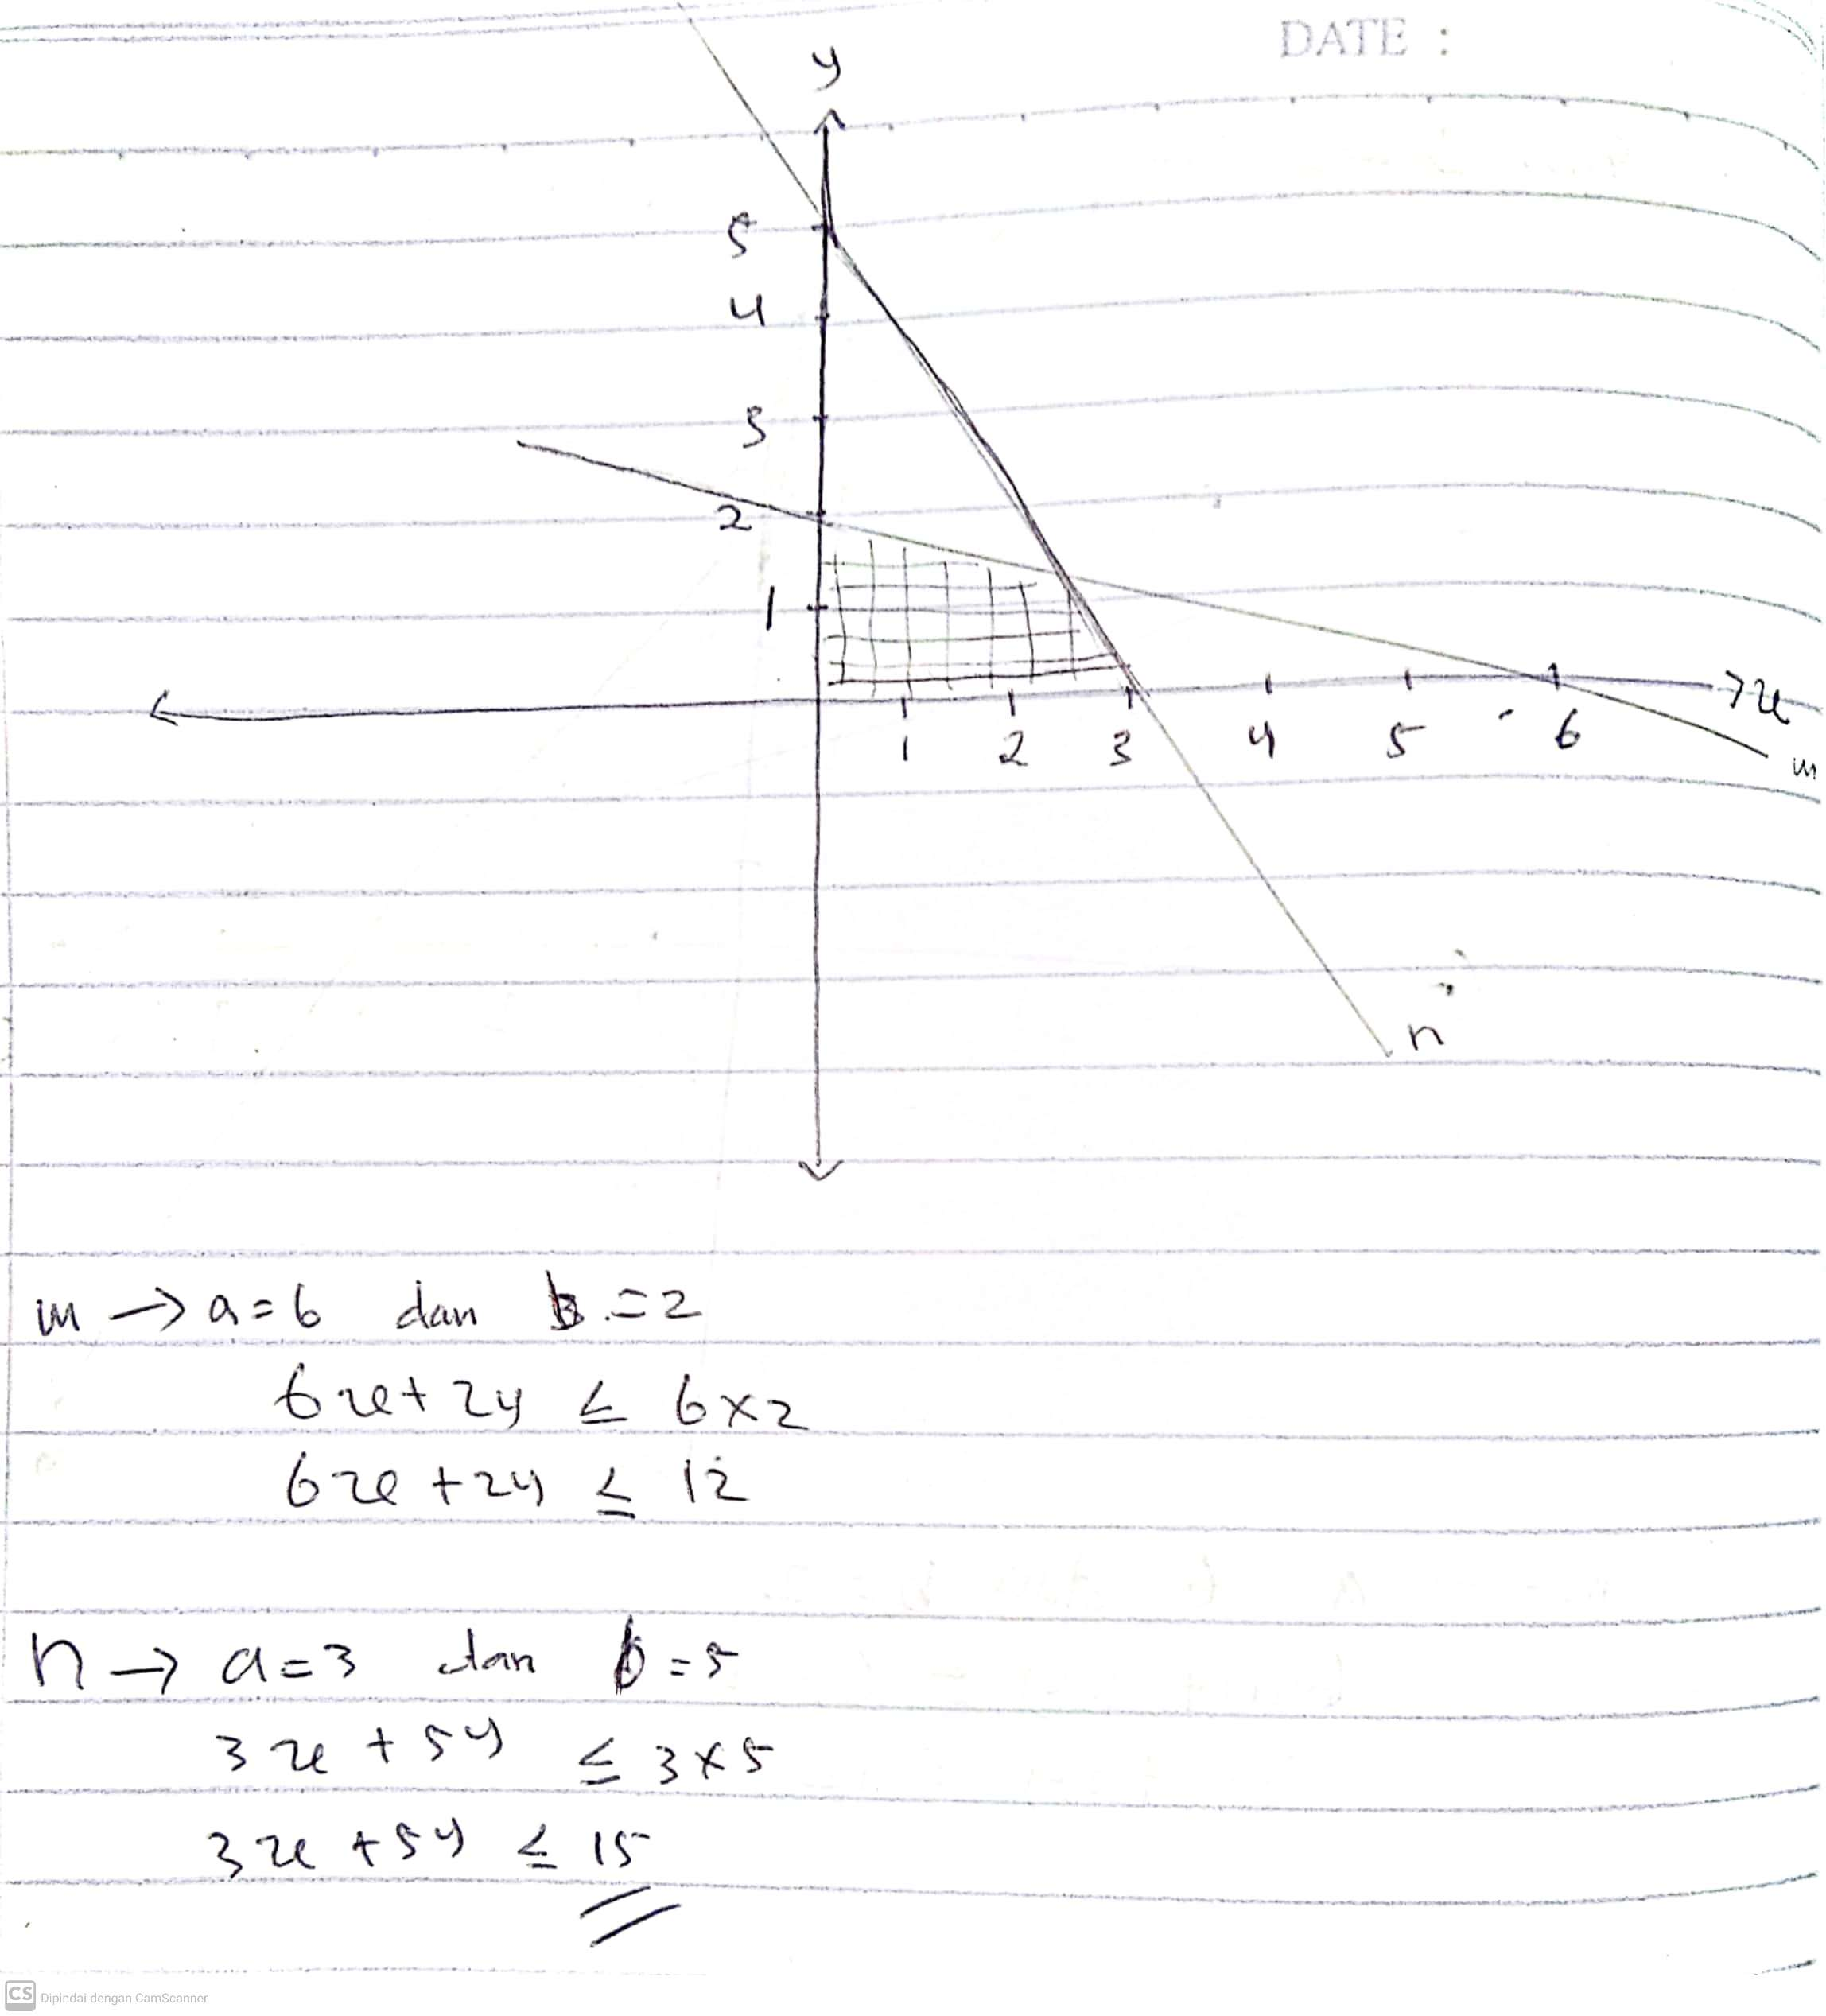 DATE :
y
5
4
3
2
1
1 2 3 4 5 6
x
m
n
m → a = 6 dan b = 2
6x + 2y ≤ 6 × 2
6x + 2y ≤ 12
n → a = 3 dan b = 5
3x + 5y ≤ 3 × 5
3x + 5y ≤ 15
CS Dipindai dengan CamScanner